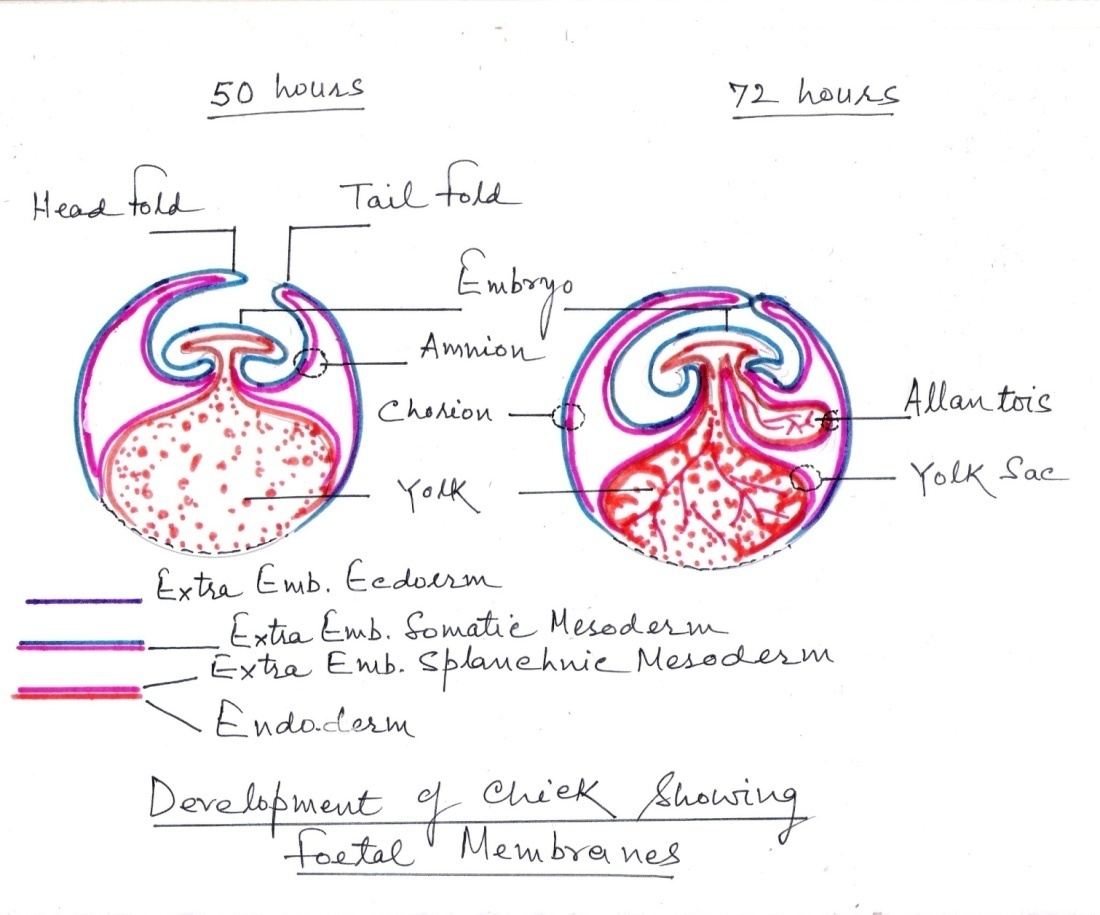 50 hours
72 hours
Head fold
Tail fold
Embryo
Amnion
Chorion
Allantois
Yolk
Yolk Sac
Extra Emb. Ecdoerm
Extra Emb. Somatic Mesoderm
Extra Emb. Splanchnic Mesoderm
Endoderm
Development of Chick Showing
Foetal Membranes